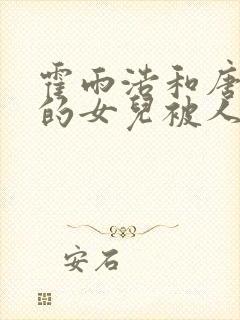 霍雨浩和唐
的女兒被人
安石